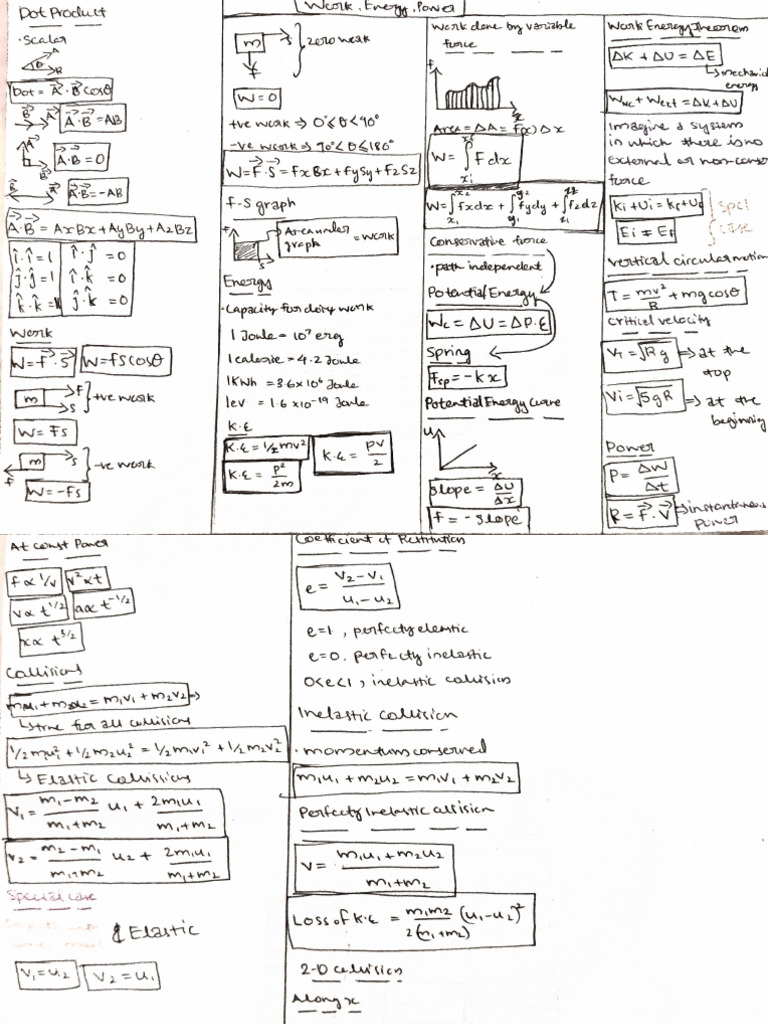 Work, Energy, Power
Dot Product
• Scalar
A
θ
B
Dot = A⃗·B⃗ cosθ
B⃗ A⃗ A⃗·B⃗ = AB
A⃗ B⃗ A⃗·B⃗ = 0
B⃗ A⃗ A⃗·B⃗ = -AB
A⃗·B⃗ = AxBx + AyBy + AzBz
î·î = 1 î·ĵ = 0
ĵ·ĵ = 1 î·k̂ = 0
k̂·k̂ = 1 ĵ·k̂ = 0
Work
W = F⃗·S⃗ W = FScosθ
m F S } +ve work
W = Fs
F m S } -ve work
W = -Fs
m S F } zero work
W = 0
+ve work ⇒ 0° ≤ θ < 90°
-ve work ⇒ 90° < θ ≤ 180°
W = F⃗·S⃗ = FxBx + FySy + FzSz
F-S graph
F S Area under graph = work
Energy
• Capacity for doing work
1 Joule = 10⁷ erg
1 calorie = 4.2 Joule
1 KWh = 3.6x10⁶ Joule
1 ev = 1.6x10⁻¹⁹ Joule
K.E
K.E = 1/2 mv² K.E = pv/2
K.E = p²/2m
Work done by variable
force
F x
Area = ΔA = F(x) Δx
W = ∫xi^xf F dx
W = ∫x1^x2 fxdx + ∫y1^y2 fydy + ∫z1^z2 fzdz
Conservative force
• path independent
Potential Energy
Wc = ΔU = ΔP.E
Spring
Fsp = -kx
Potential Energy curve
U x
slope = ΔU/Δx
F = -slope
Work Energy Theorem
ΔK + ΔU = ΔE
↳ mechanical
energy
Wnc + Wext = ΔK + ΔU
Imagine a system
in which there is no
external or non-cons
force
Ki + Ui = Kf + Uf } Spcl
case
Vertical circular motion
T = mv²/R + mgcosθ
Critical velocity
VT = √Rg ⇒ at the
top
Vi = √5gR ⇒ at the
beginning
Power
P = ΔW/Δt
R = F⃗·V⃗ ⇒ instantaneous
power
At const Power
F ∝ 1/v v² ∝ t
v ∝ t^1/2 a ∝ t^-1/2
x ∝ t^3/2
Collisions
m1u1 + m2u2 = m1v1 + m2v2 ⇒
↳ true for all collisions
1/2 m1u1² + 1/2 m2u2² = 1/2 m1v1² + 1/2 m2v2²
↳ Elastic Collissions
V1 = (m1-m2)/(m1+m2) u1 + 2m1u1/(m1+m2)
V2 = (m2-m1)/(m1+m2) u2 + 2m1u1/(m1+m2)
Special case
& Elastic
V1 = u2 V2 = u1
Coefficient of Restitution
e = (V2-V1)/(u1-u2)
e=1, perfecty elastic
e=0, perfecty inelastic
0<e<1, inelastic collision
Inelastic Collision
• momentum conserved
m1u1 + m2u2 = m1v1 + m2v2
Perfecty Inelastic collision
V = (m1u1 + m2u2)/(m1+m2)
Loss of K.E = m1m2/2(m1+m2) (u1-u2)²
2-D collision
Along x